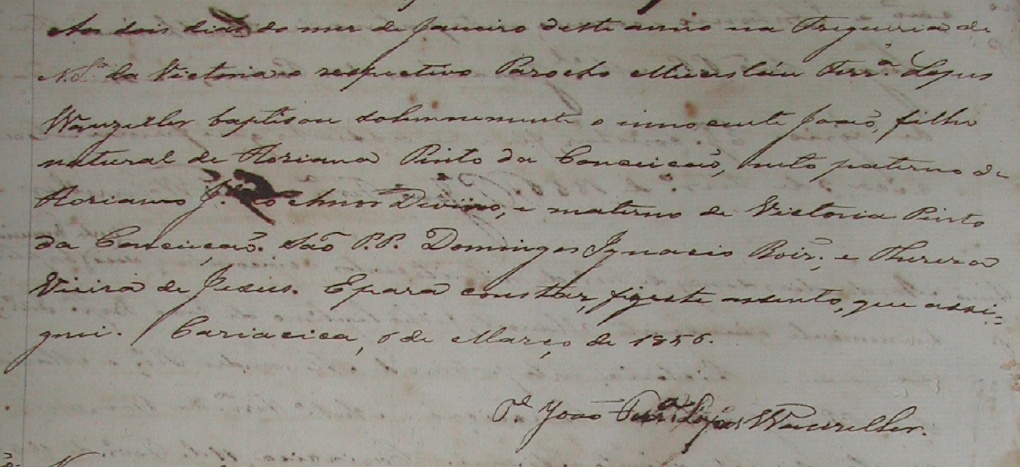 Aos dois dias do mez de Janeiro deste anno na Freguezia de
N. Sra. da Victoria o respectivo Parocho Mieceslau Ferra. Lopes
Wanzeller baptisou solemnemente o innocente João, filho
natural de Floriana Pinto da Conceicaõ, neto paterno de
Floriano J.e do Amor Divino, e materno de Victoria Pinto
da Conceicaõ. Saõ P.P. Domingos Ignacio Roiz., e Thereza
Vieira de Jesus. E para constar, fiz este assento, que assi=
gnei. Cariacica, 6 de Março de 1856.
Pe. João Ferra. Lopes Wanzeller.